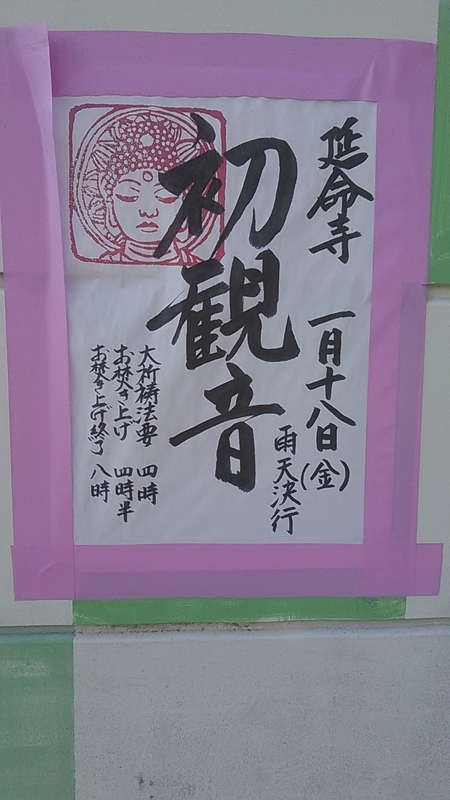 延命寺　一月十八日(金)
雨天決行
初観音
大祈祷法要　四時
お焚き上げ　四時半
お焚き上げ終了　八時